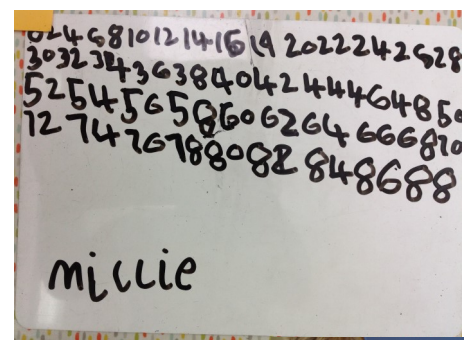 0 2 4 6 8 10 12 14 16 19 20 22 24 26 28
30 32 34 36 38 40 42 44 46 48 50
52 54 56 58 60 62 64 66 68 70
72 74 76 78 80 82 84 86 88
millie